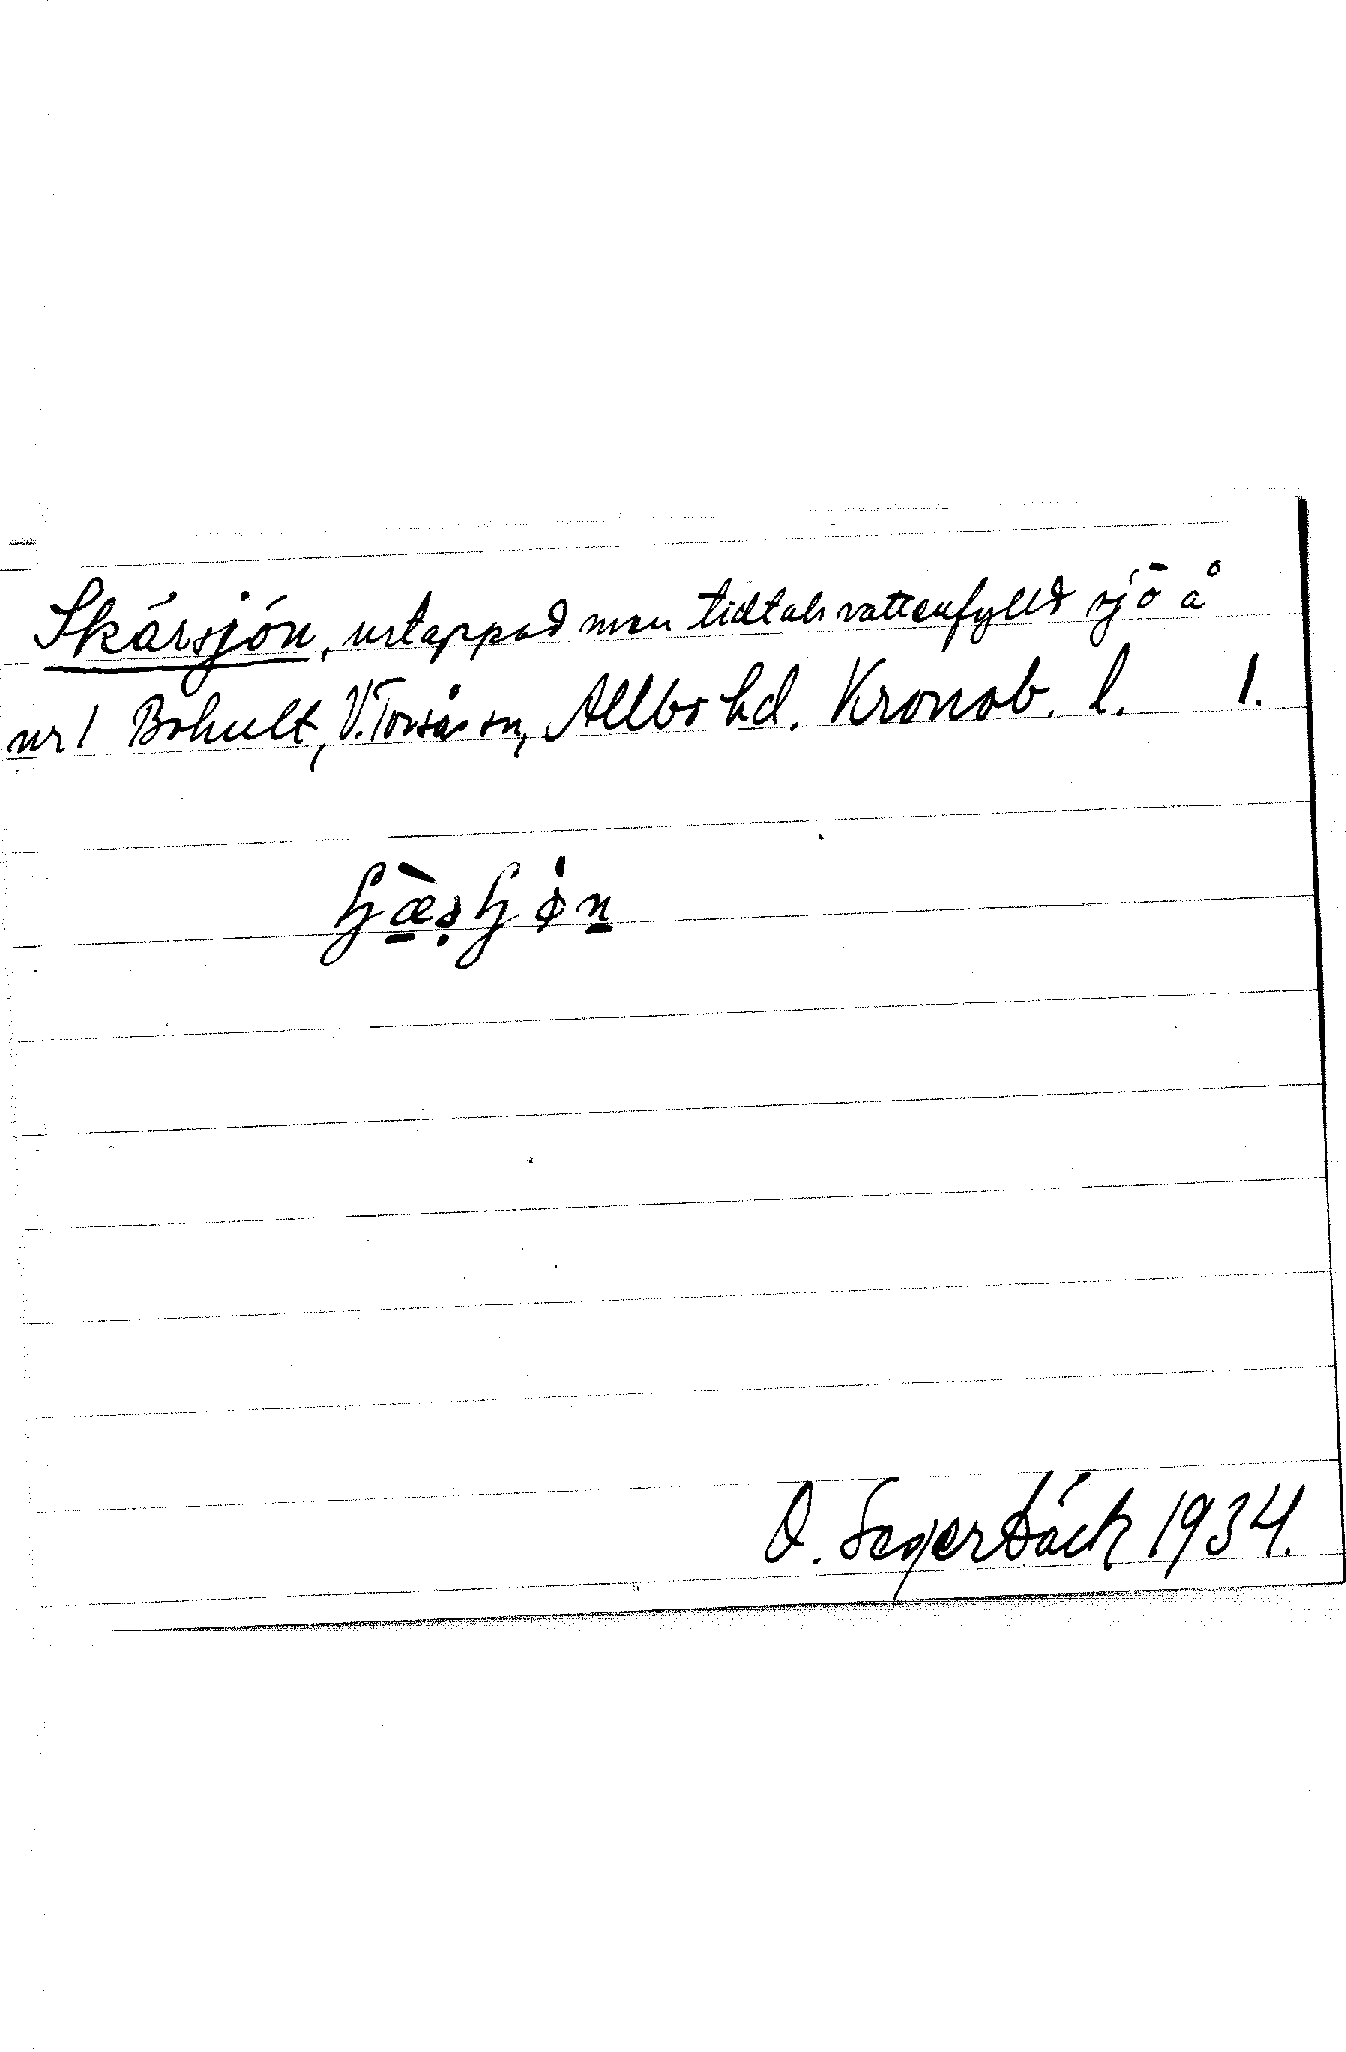 Skärsjön, urtappad men tidtals vattenfylld sjö å
nr 1 Bohult, V. Torsås sn, Allbo hd. Kronob. l. 1.
O. Segerbäck 1934.